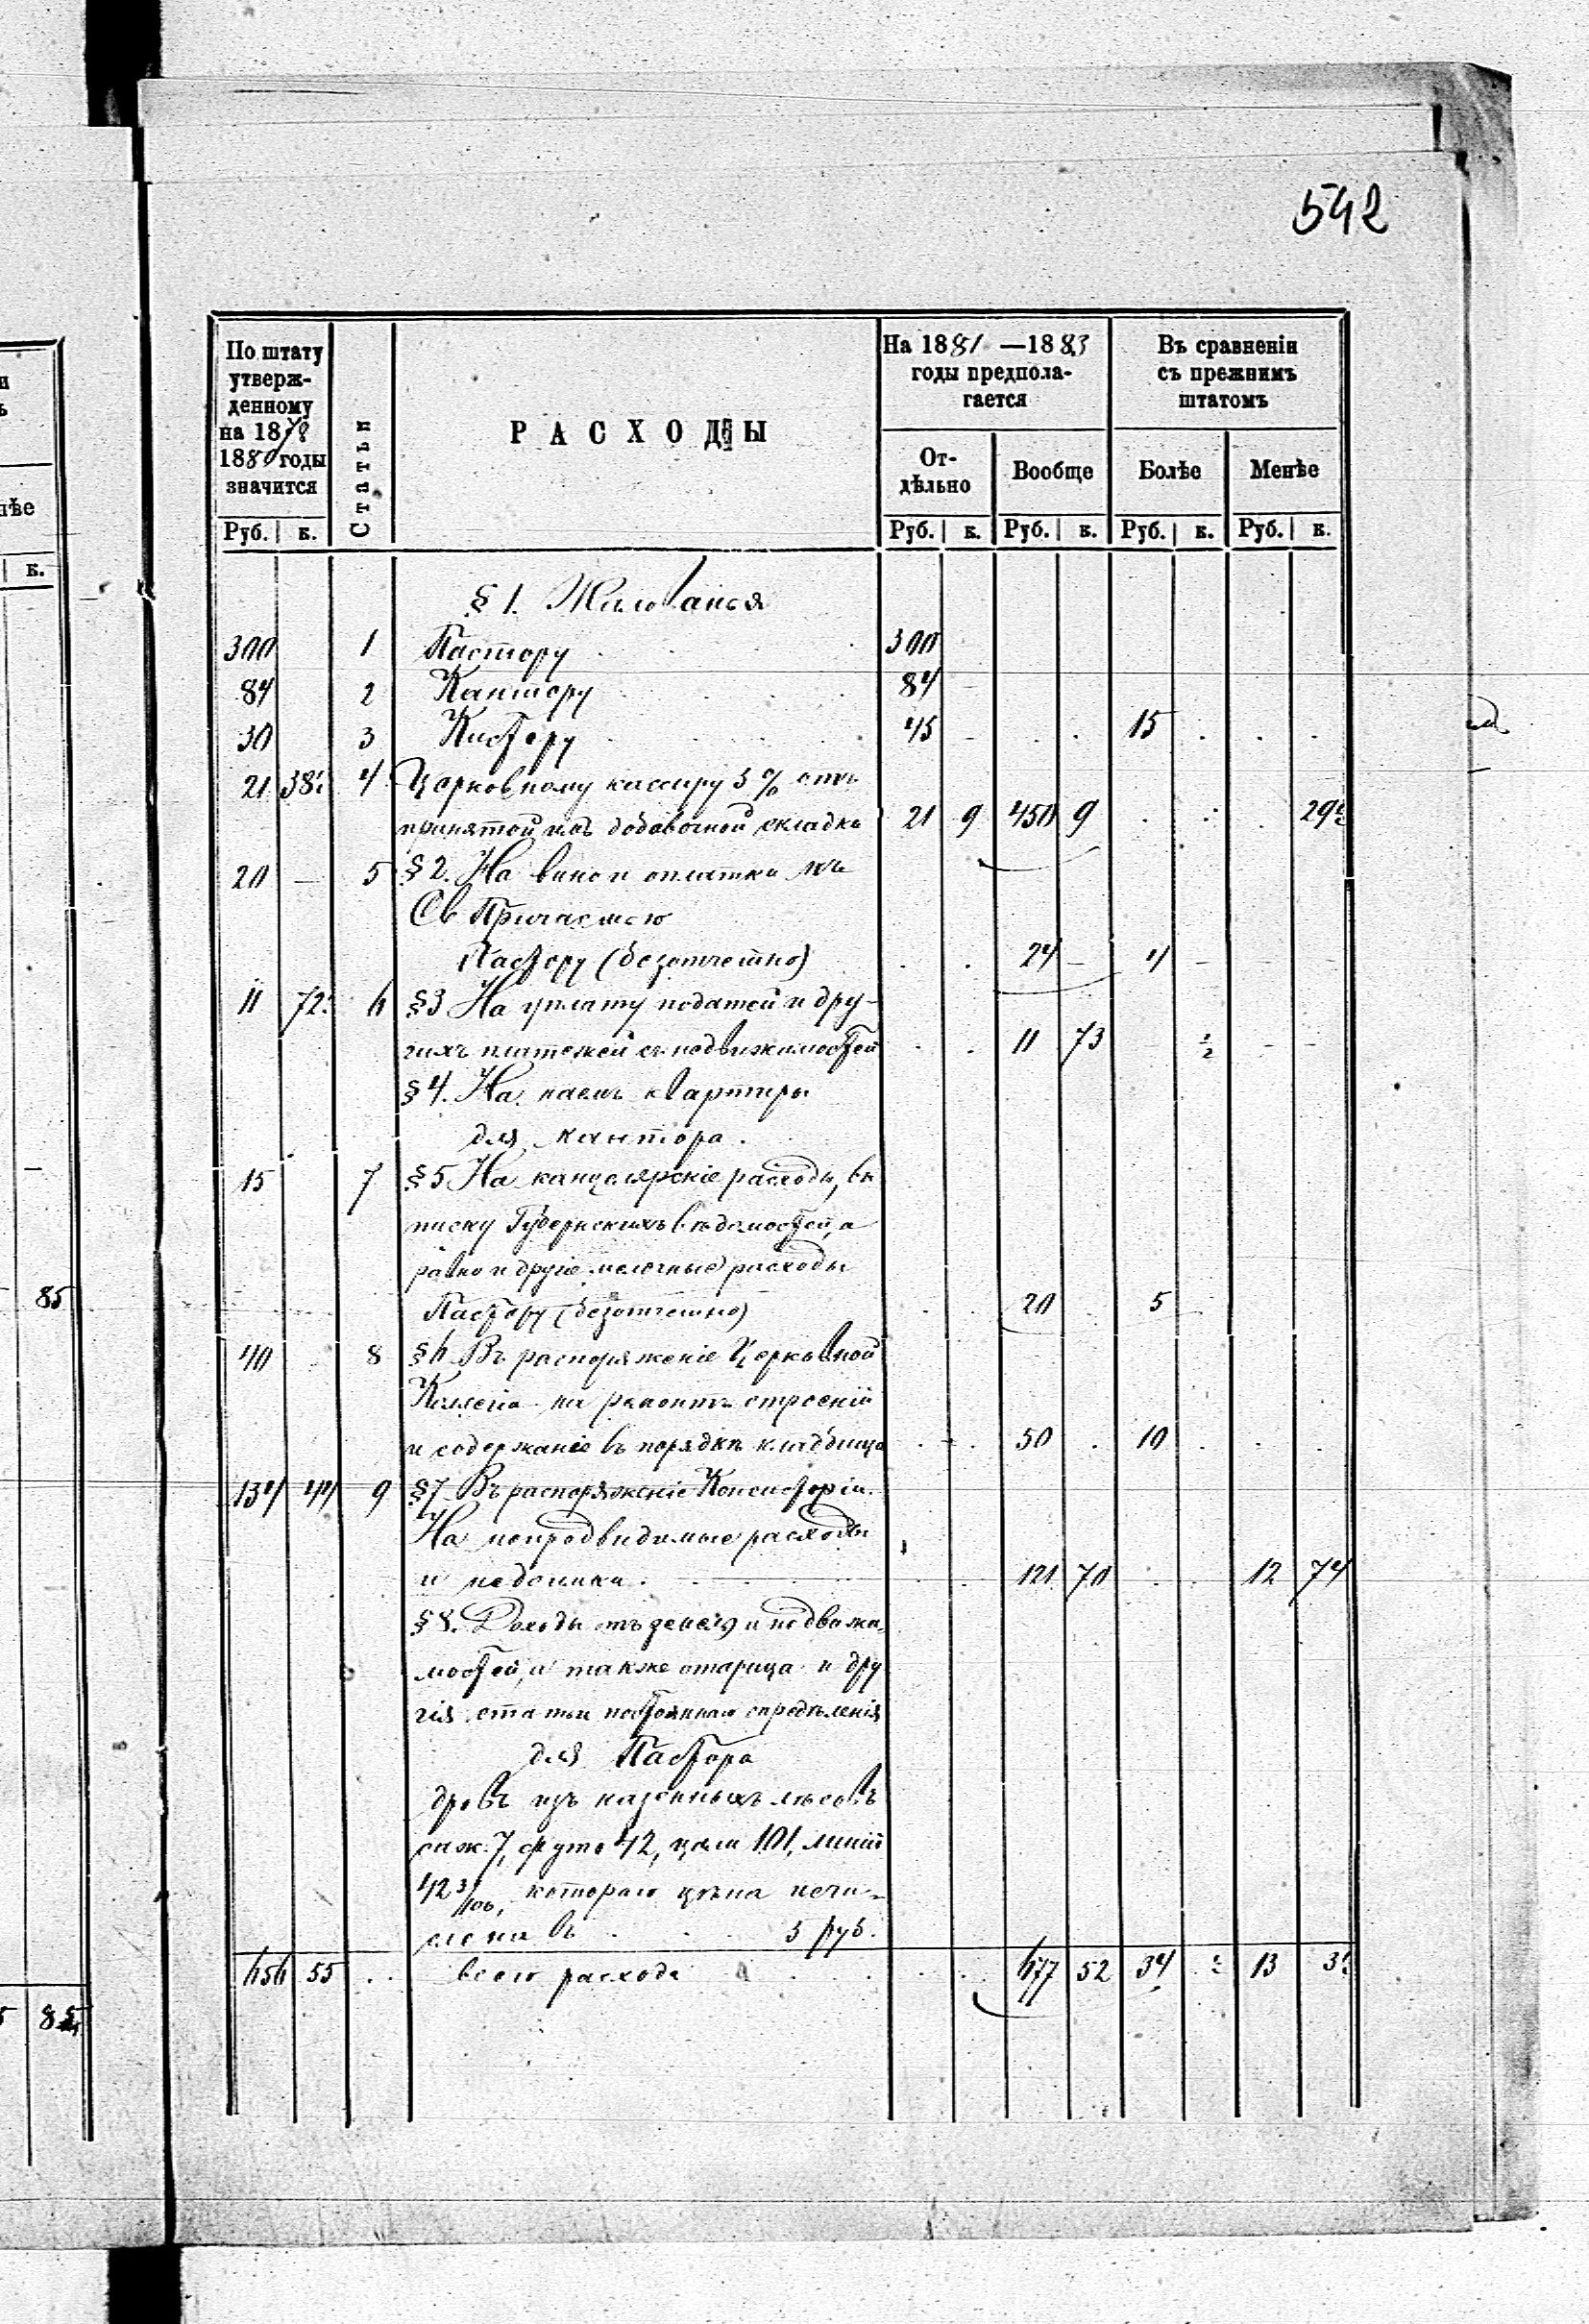 542
По штату утверж- денному на 1878 1880 годы значится
Статьи
РАСХОДЫ
На 1881 —1883 годы предпола- гается
Въ сравненіи съ прежнимъ штатомъ
От- дѣльно Вообще Болѣе Менѣе
Руб. к. Руб. к. Руб. к. Руб. к. Руб. к.
§ 1. Жалованья
300 1 Пастору 300
84 2 Кантору 84
30 3 Кистеру 45 15
21 38½ 4 Церковному кассиру 3% отъ
принятой имъ добавочной складки 21 9 450 9 29½
20 — 5 § 2. На вино и оплатки къ
Св Причастію
Пастору (безотчетно) 24 — 4 —
11 72½ 6 §3 На уплату податей и дру-
гихъ платежей съ недвижимостей 11 73 ½
§ 4. На наемъ квартиры
для кантора.
15 7 § 5 На канцелярскіе расходы, вы
писку Губернскихъ вѣдомостей, а
равно и другіе мелочные расходы
Пастору (безотчетно) 20 5
40 8 § 6 Въ распоряженіе Церковной
Коллегіи на ремонтъ строеній
и содержаніе въ порядкѣ кладбища 50 10
134 44 9 §7 Въ распоряженіе Консисторіи.
На непредвидимые расходы
и недоимки. 121 70 12 74
§ 8. Доходы отъ земель и недвижи-
мостей, а также отарица и дру
гія статьи постояннаго опредѣленія
для Пастора
дровъ изъ казенныхъ лѣсовъ
саж. 7, футо 42, цоли 101, линій
42 3/100, котораго цѣна исчи-
слена въ 3 руб.
656 55 всего расхода 677 52 34 ½ 13 3½
85
5 85
нѣе
к.